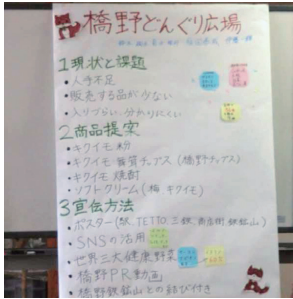 橋野どんぐり広場
1 現状と課題
・人手不足
・販売する品が少ない
・入りづらい 分かりにくい
2 商品提案
・キクイモ粉
・キクイモ 雑貨チップス (橋野チップス)
・キクイモ 焼酎
・ソフトクリーム (梅 キクイモ)
3 宣伝方法
・ポスター (駅、TETTO、三鉄、商店街、鉄鉱山)
・SNSの活用
・世界三大健康野菜
・橋野PR動画
・橋野鉄鉱山との結び付き